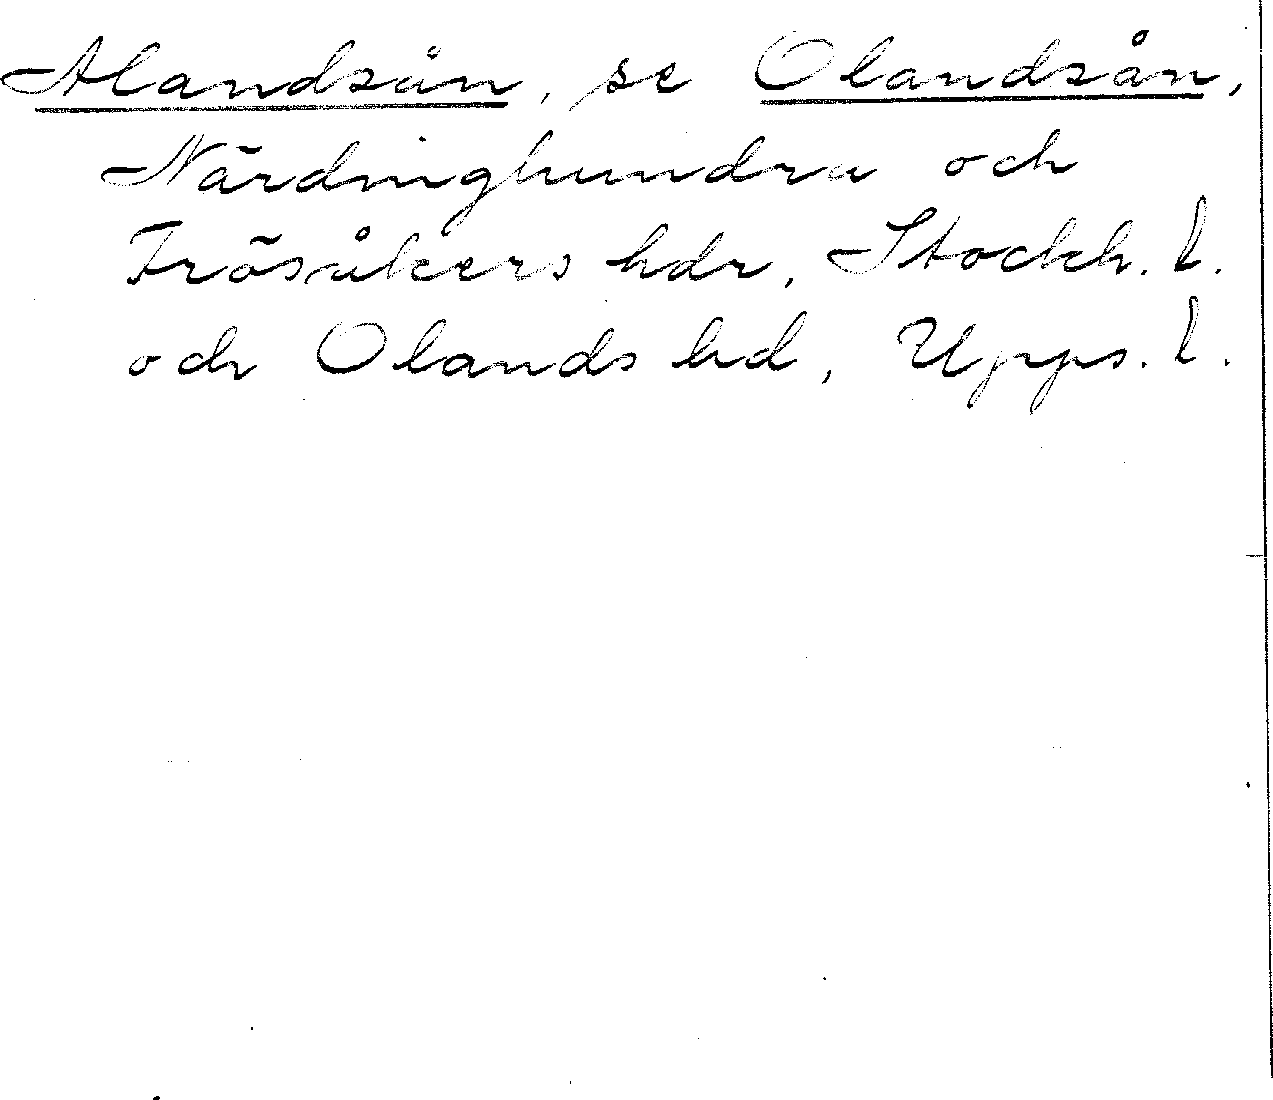 Alandsån, se Olandsån,
Närdinghundra och
Frösåkers hdr, Stockh. l.
och Olands hd, Upps. l.